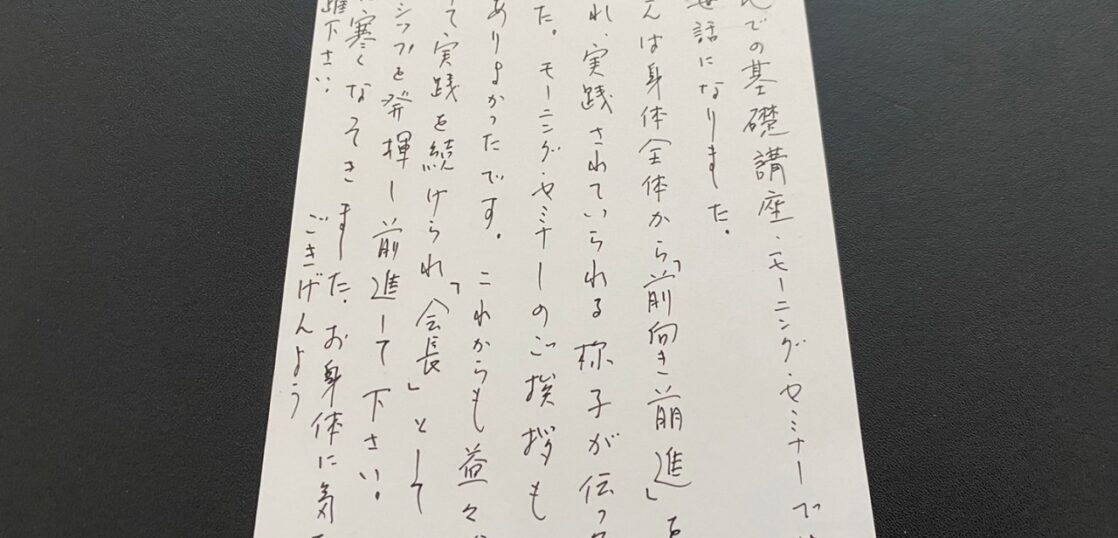 での基礎講座・モーニング・セミナーで
世話になりました。
んは身体全体から「前向き前進」を
れ、実践されていられる様子が伝
た。モーニング・セミナーのご挨拶も
ありよかったです。これからも益々
て実践を続けられ「会長」として
シップを発揮し前進して下さい。
寒くなってきました。お身体に気
躍下さい。
ごきげんよう